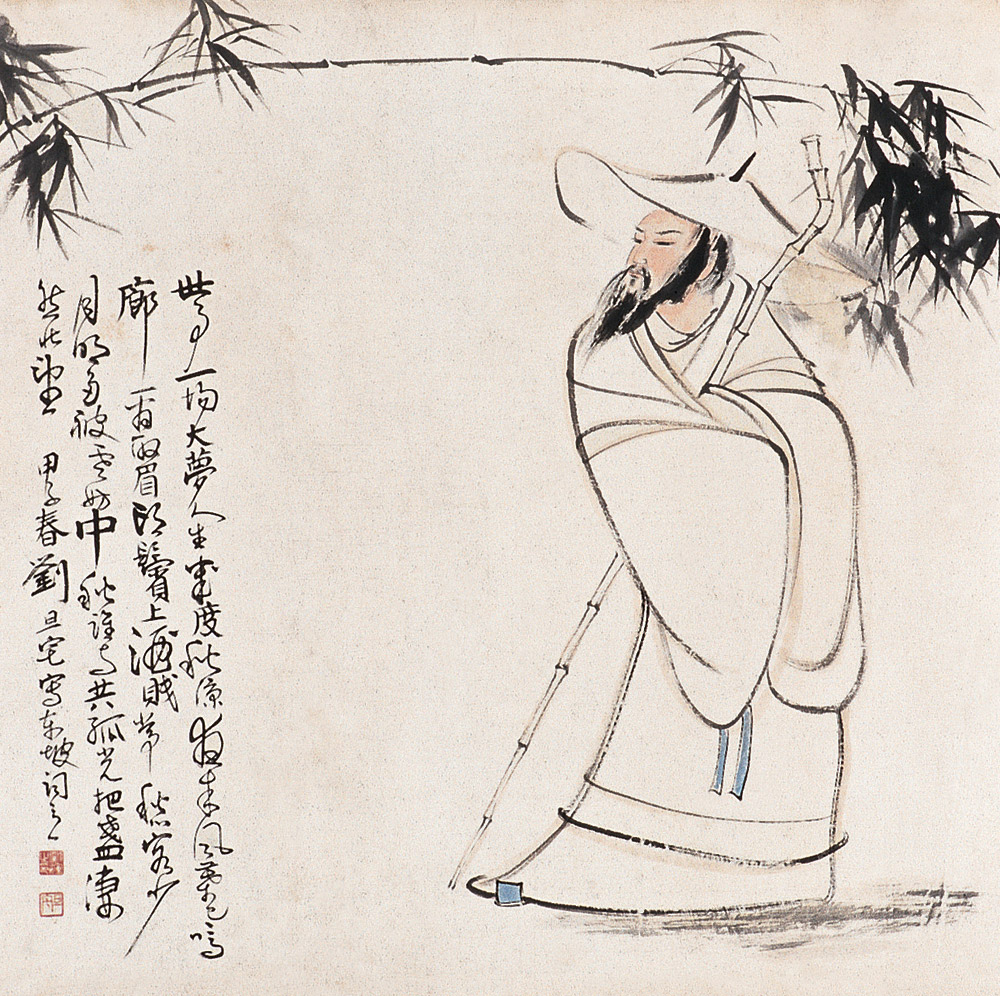 世事一場大夢人生幾度秋涼夜來風葉已鳴
廊看取眉頭鬢上酒賤常愁客少
月明多被雲妨中秋誰與共孤光把盞淒
然北望 甲子春劉旦宅寫東坡詞之一